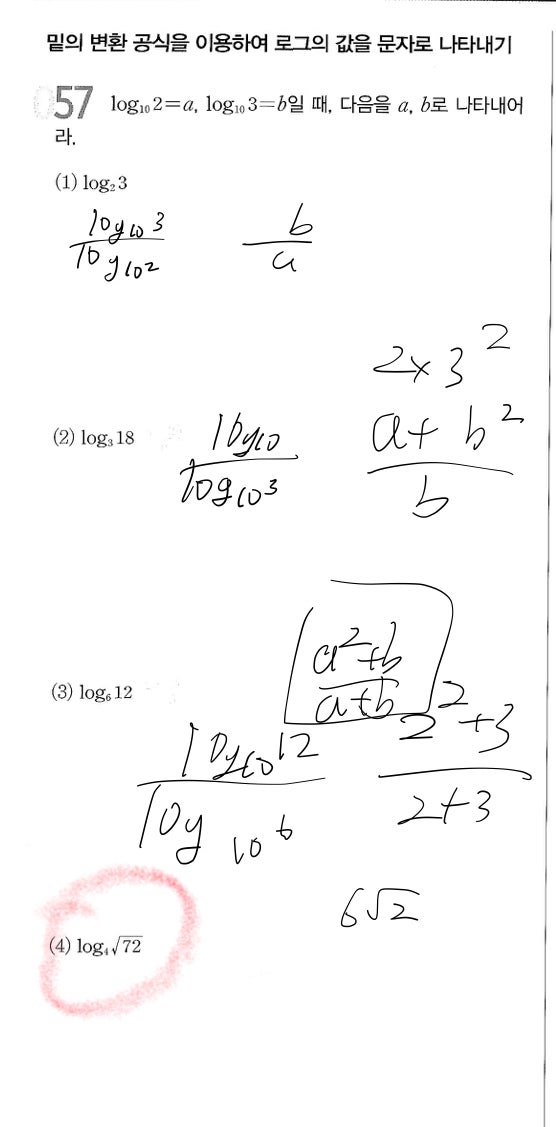 밑의 변환 공식을 이용하여 로그의 값을 문자로 나타내기
057 log₁₀2=a, log₁₀3=b일 때, 다음을 a, b로 나타내어
라.
(1) log₂3
log₁₀3 / log₁₀2    b / a
2×3²
(2) log₃18    log₁₀ / log₁₀3    a+b² / b
a²+b / a+b
(3) log₆12
log₁₀12 / log₁₀6    2²+3 / 2+3
6√2
(4) log₄√72